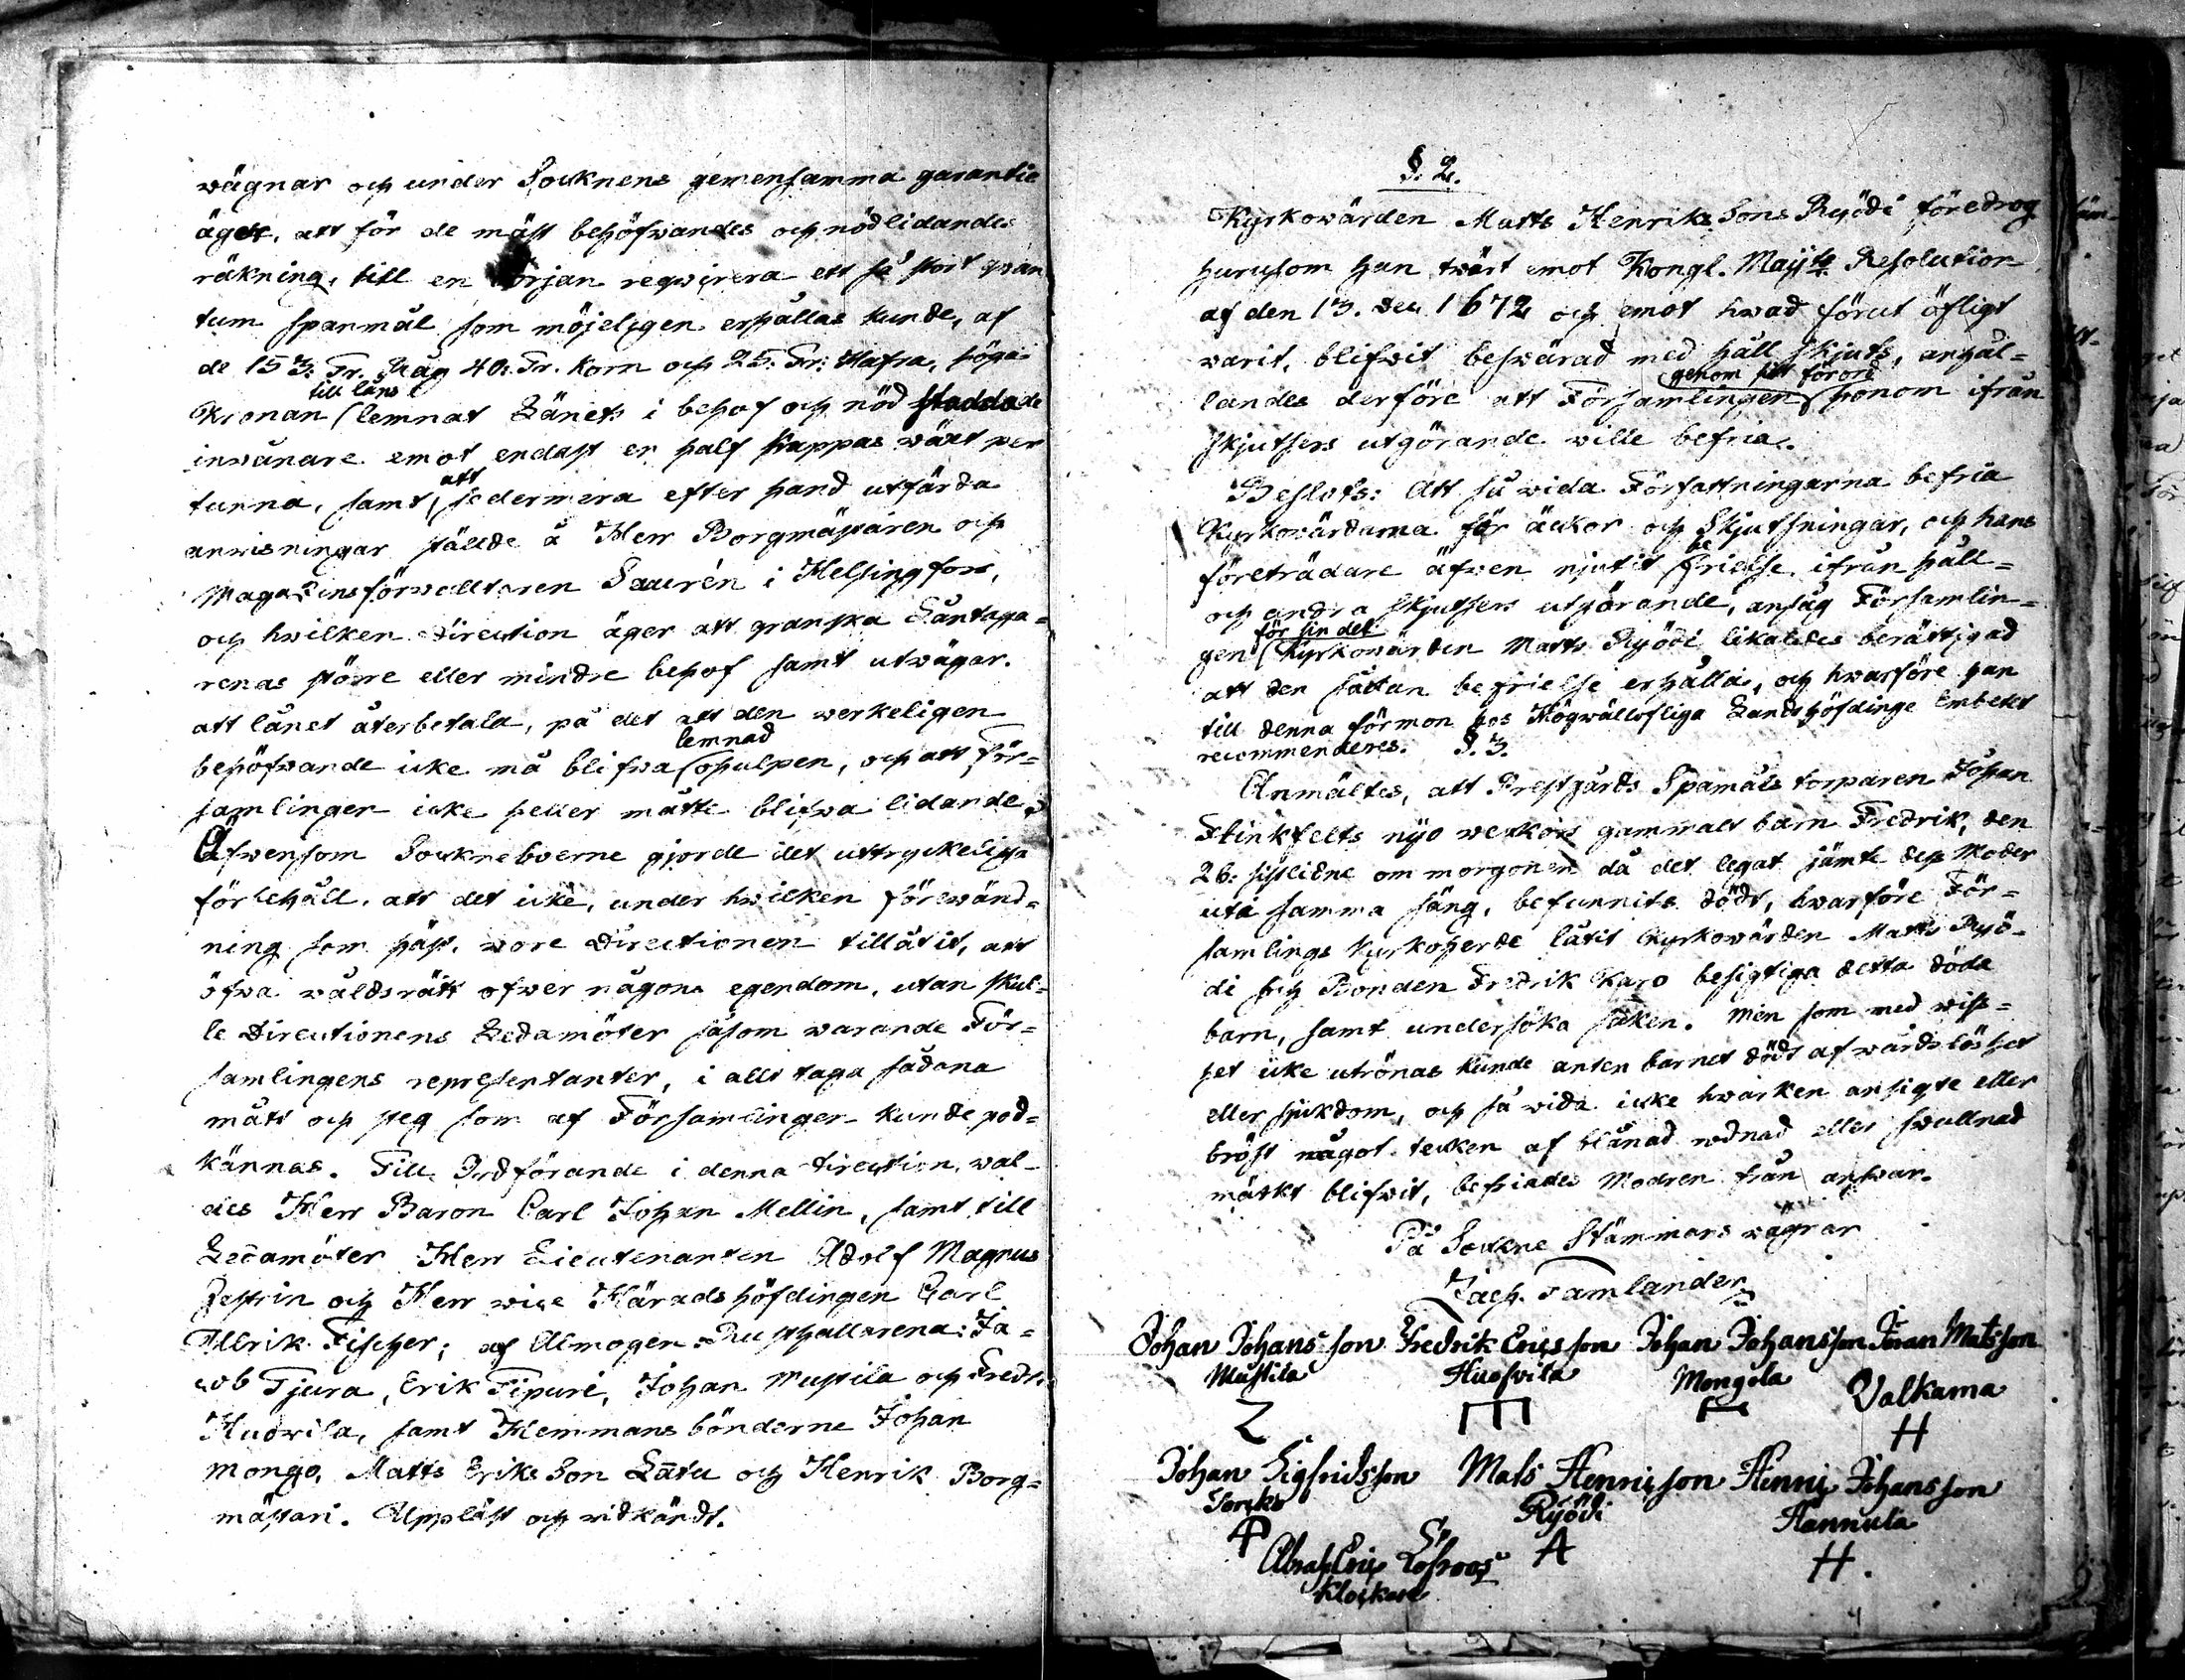 wägnar och under Socknens gemensamma garantie
äger, att för de mäst behöfwandes och nödlidandes
räkning, till en början reqwirera ett så stort qwan
tum spanmål som möjeligen erhållas kunde, af
de 153: Tr. Råg 40. Tr. Korn och 25. Tr: Hafra, höga
till låns
Kronan lemnat Länets i behof och nöd stadde
inwånare emot endast en half kappas wäxt per
att
tunna, samt sedermera efter hand utfärda
anwisningar stälde å Herr Borgmästaren och
Magazinsförwalltaren Sauren i Helsingfors,
och hwilken direction äger att granska Låntaga=
renas större eller mindre behof samt utwägar
att lånet återbetala, på det att den werkeligen
lemnad
behöfwande icke må blifwa ohulpen, och att För=
samlingen icke heller måtte blifwa lidande.
Äfwensom Sockneboerne gjorde det uttryckeliga
förbehåll, att det icke, under hwilken förewänd=
ning som häst, wore Directionen tillåtit, att
öfwa wåldsrätt öfwer någons egendom, utan skul=
le Directionens Ledamöter såsom warande För=
samlingens representanter, i allt taga sådana
mått och steg som af Församlingen kunde god=
kännas. Till Ordförande i denna direction, wal=
des Herr Baron Carl Johan Mellin, samt till
Ledamöter Herr Lieutenanten Adolf Magnus
och Herr wice Häradshöfdingen Carl
Ullrik Fischer; af Allmogen Rusthållarena: Ja=
cob Tjura, Erik Tipuri, Johan Mustila och Fredr.
Huowila, samt Hemmans bönderne Johan
Mongo, Matts Eriks Son Latu och Henrik Borg=
mästari. Uppläst och widkändt.
§. 2.
Kyrkowärden Matts Henriks Sons Ryödi föredrog
hurusom han twärt emot Kongl. Maijts Resolution
af den 13. Dec. 1672 och emot hwad förut öfligt
warit, blifwit beswärad med håll skjuts, anhål=
genom sitt förord
landes derföre att Församlingen honom ifrån
skjutsers utgörande wille befria.
Beslöts: Att så wida Författningarna befria
Kyrkowärdarna för äckor och Skjutsningar, och hans
be
företrädare äfwen njutit frielse ifrån håll=
och andra skjutsers utgörande, ansåg Församlin=
för sin del
gen Kyrkowärden Matts Ryödi likaledes berättigad
att den sådan befrielse erhålla, och hwarföre han
till denna förmon hos Högwällofliga Landshöfdinge Embetet
recommenderes. §. 3.
Anmältes, att Prestgårds Spanmåls torparen Johan
Flinkfelts nyo weckors gammalt barn Fredrik, den
26: sistledne om morgonen då det legat jämte dess Moder
uti samma säng, befunnits dödt, hwarföre För=
samlings Kyrkoherde låtit Kyrkowärden Matts Ryö=
di och Bonden Fredrik Karo besigtiga detta döda
barn, samt undersöka saken. Men som med wiss=
het icke utrönas kunde anten barnet dödt af wårdslöshet
eller sjukdom, och så wida icke hwarken ansigte eller
bröst något tecken af blånad rodnad eller swullnad
märkt blifwit, befriades Modren från answar.
På Sockne Stämmans wägnar
Zach. Tamlander
Johan Johansson Fredrik Ericsson Johan Johansson Johan Matsson
Mustila Huofvila Mongola Valkama
Z E E H
Johan Sigfridsson Mats Hennicson Hennic Johansson
Ryödi Hannula
A H.
Abrah Eric Löfroos
Klockare